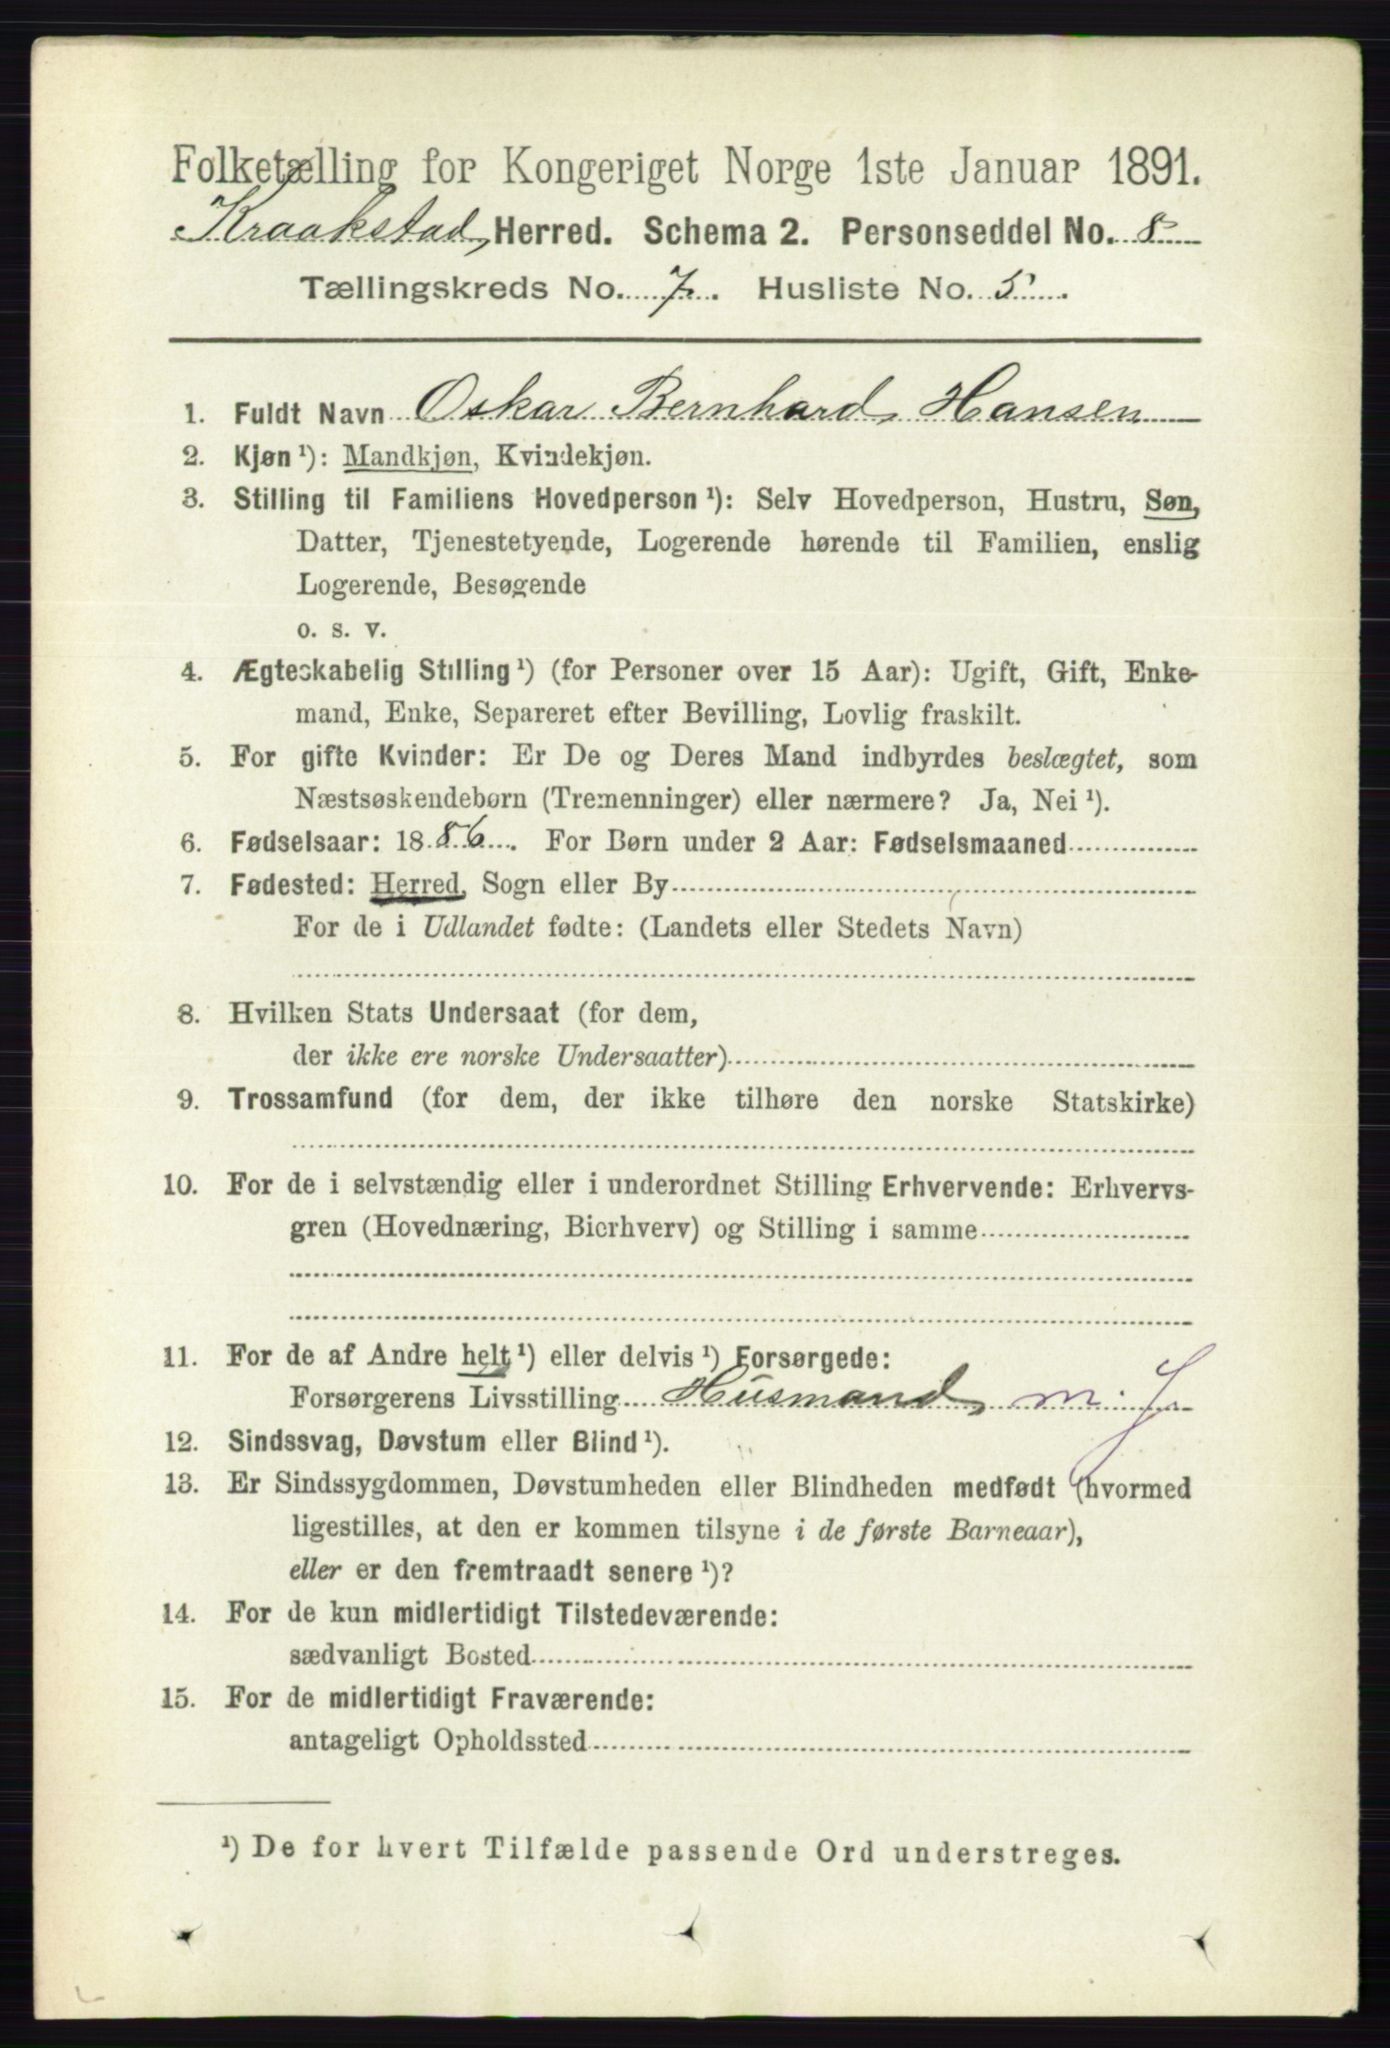 Folketælling for Kongeriget Norge 1ste Januar 1891.
Kraakstad Herred. Schema 2. Personseddel No. 8
Tællingskreds No. 7. Husliste No. 5.
1. Fuldt Navn Oskar Bernhard Hansen
2. Kjøn ¹): Mandkjøn, Kvindekjøn.
3. Stilling til Familiens Hovedperson ¹): Selv Hovedperson, Hustru, Søn,
Datter, Tjenestetyende, Logerende hørende til Familien, enslig
Logerende, Besøgende
o. s. v.
4. Ægteskabelig Stilling ¹) (for Personer over 15 Aar): Ugift, Gift, Enke-
mand, Enke, Separeret efter Bevilling, Lovlig fraskilt.
5. For gifte Kvinder: Er De og Deres Mand indbyrdes beslægtet, som
Næstsøskendebørn (Tremenninger) eller nærmere? Ja, Nei ¹).
6. Fødselsaar: 1886. For Børn under 2 Aar: Fødselsmaaned
7. Fødested: Herred, Sogn eller By
For de i Udlandet fødte: (Landets eller Stedets Navn)
8. Hvilken Stats Undersaat (for dem,
der ikke ere norske Undersaatter)
9. Trossamfund (for dem, der ikke tilhøre den norske Statskirke)
10. For de i selvstændig eller i underordnet Stilling Erhvervende: Erhvervs-
gren (Hovednæring, Bierhverv) og Stilling i samme
11. For de af Andre helt ¹) eller delvis ¹) Forsørgede:
Forsørgerens Livsstilling Husmand m. J.
12. Sindssvag, Døvstum eller Blind ¹).
13. Er Sindssygdommen, Døvstumheden eller Blindheden medfødt (hvormed
ligestilles, at den er kommen tilsyne i de første Barneaar),
eller er den fremtraadt senere ¹)?
14. For de kun midlertidigt Tilstedeværende:
sædvanligt Bosted
15. For de midlertidigt Fraværende:
antageligt Opholdssted
¹) De for hvert Tilfælde passende Ord understreges.